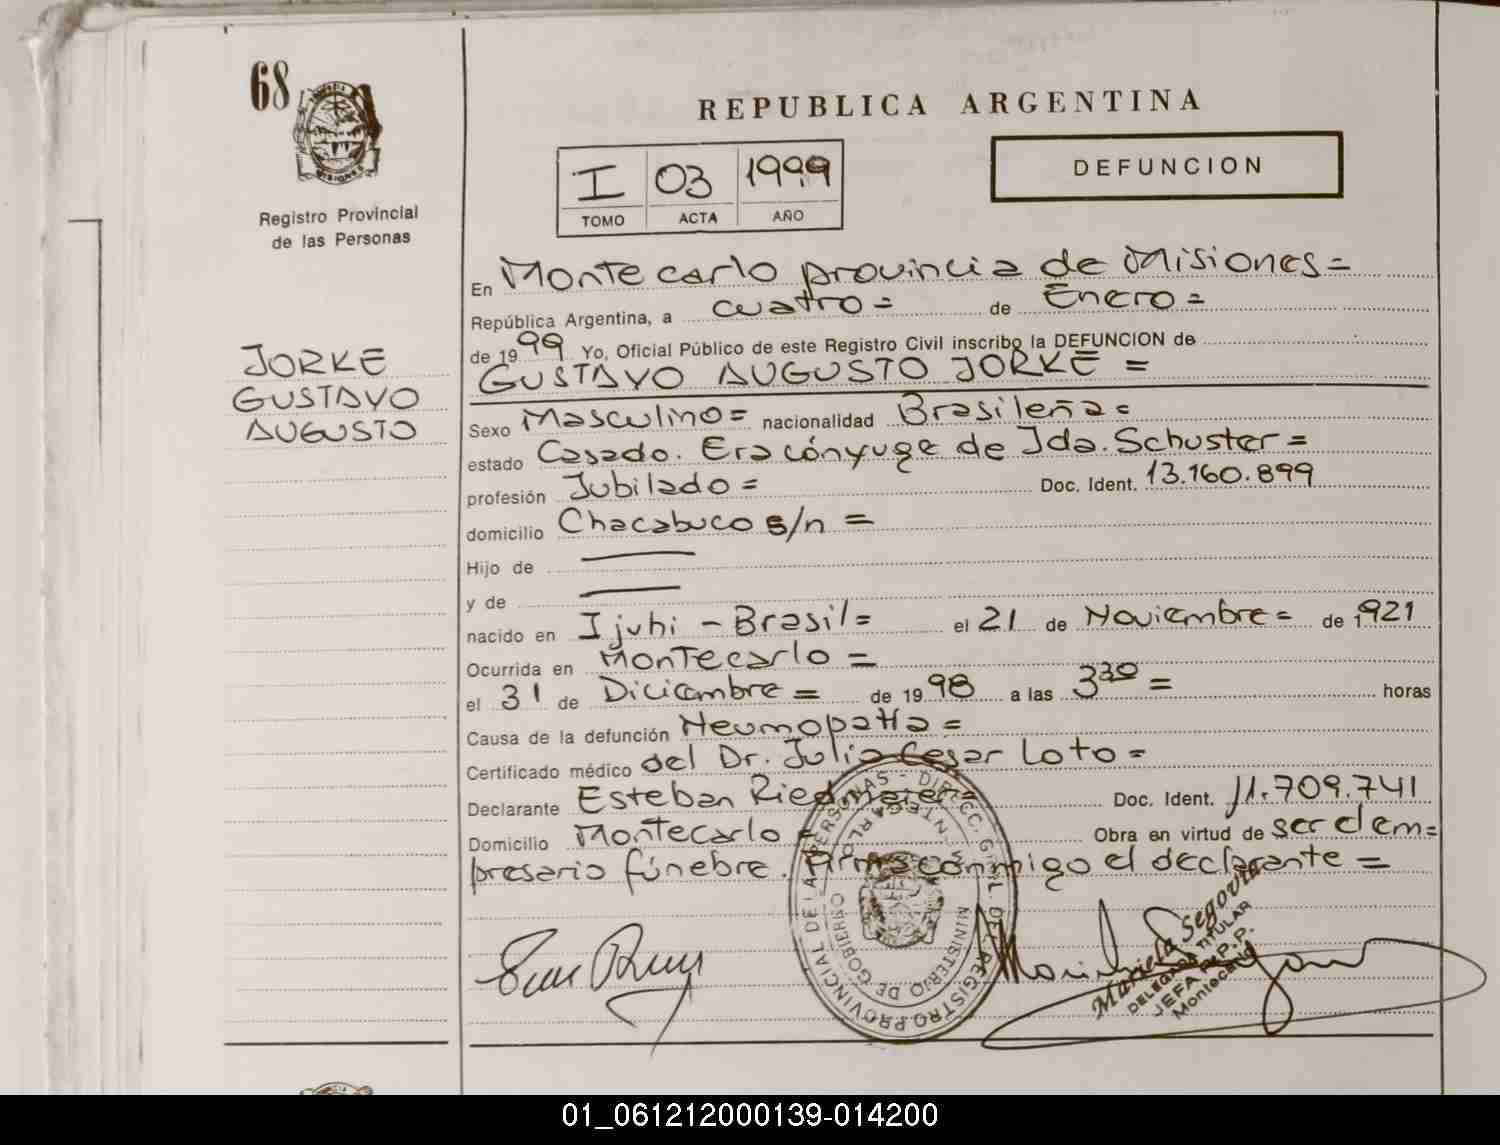 68
Registro Provincial
de las Personas
JORKE
GUSTAVO
AUGUSTO
REPUBLICA ARGENTINA
I 03 1999
TOMO ACTA AÑO
DEFUNCION
En Montecarlo provincia de Misiones=
República Argentina, a cuatro= de Enero=
de 1999 Yo, Oficial Público de este Registro Civil inscribo la DEFUNCION de
GUSTAVO AUGUSTO JORKE =
Sexo Masculino= nacionalidad Brasileña=
estado Casado. Era cónyuge de Ida. Schuster=
profesión Jubilado= Doc. Ident. 13.160.899
domicilio Chacabuco s/n =
Hijo de
y de
nacido en Ijuhi - Brasil= el 21 de Noviembre= de 1921
Ocurrida en Montecarlo =
el 31 de Diciembre= de 1998 a las 3 30 = horas
Causa de la defunción Neumopatía=
Certificado médico del Dr. Julio Cesar Loto=
Declarante Esteban Riedmaier= Doc. Ident. 11.709.741
Domicilio Montecarlo = Obra en virtud de ser el em=
presario fúnebre. Firma conmigo el declarante =
REGISTRO PROVINCIAL DE LAS PERSONAS - DIRECC. GRAL. DEL
MINISTERIO DE GOBIERNO
MONTECARLO
Mariela Segovia
DELEGADA TITULAR
JEFA R.P.P.
Montecarlo
01_061212000139-014200